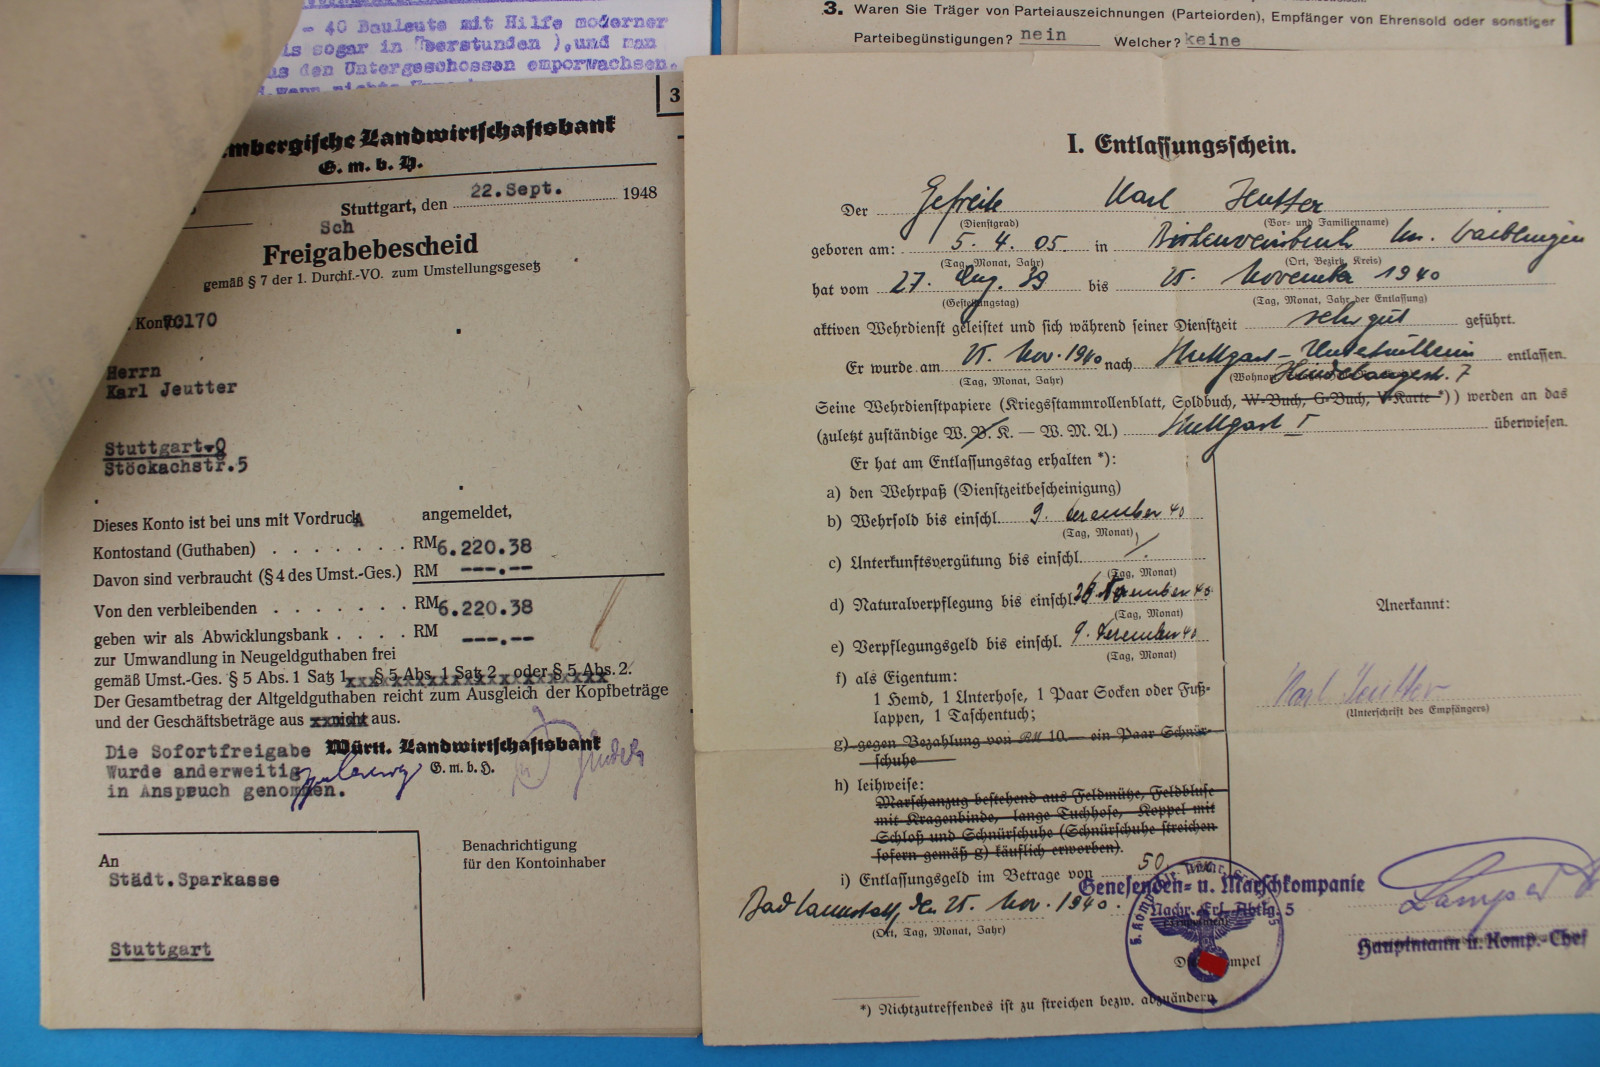 – 40 Bauleute mit Hilfe moderner
is sogar in Überstunden ),und man
us den Untergeschossen emporwachsen.
3. Waren Sie Träger von Parteiauszeichnungen (Parteiorden), Empfänger von Ehrensold oder sonstiger
Parteibegünstigungen? nein Welcher? keine
3
mbergische Landwirtschaftsbank
G. m. b. H.
Stuttgart, den 22.Sept. 1948
Sch
Freigabebescheid
gemäß § 7 der 1. Durchf.-VO. zum Umstellungsgesetz
Konto 70170
Herrn
Karl Jeutter
Stuttgart-O
Stöckachstr.5
Dieses Konto ist bei uns mit Vordruck A angemeldet,
Kontostand (Guthaben) . . . . . . . RM 6.220.38
Davon sind verbraucht (§ 4 des Umst.-Ges.) RM ---.--
Von den verbleibenden . . . . . . . RM 6.220.38
geben wir als Abwicklungsbank . . . . RM ---.--
zur Umwandlung in Neugeldguthaben frei
gemäß Umst.-Ges. § 5 Abs. 1 Satz 1, § 5 Abs. 1 Satz 2 oder § 5 Abs. 2.
Der Gesamtbetrag der Altgeldguthaben reicht zum Ausgleich der Kopfbeträge
und der Geschäftsbeträge aus nicht aus.
Die Sofortfreigabe Württ. Landwirtschaftsbank
Wurde anderweitig G. m. b. H.
in Anspruch genommen.
An
Städt.Sparkasse
Stuttgart
Benachrichtigung
für den Kontoinhaber
I. Entlassungsschein.
Der Gefreite Karl Jeutter
(Dienstgrad) (Vor- und Familienname)
geboren am: 5. 4. 05. in Birkenweissbuch Kr. Waiblingen
(Tag, Monat, Jahr) (Ort, Bezirk, Kreis)
hat vom 27. Aug. 39 bis 25. November 1940
(Gestellungstag) (Tag, Monat, Jahr der Entlassung)
aktiven Wehrdienst geleistet und sich während seiner Dienstzeit sehr gut geführt.
Er wurde am 25. Nov. 1940 nach Stuttgart-Untertürkheim entlassen.
(Tag, Monat, Jahr) (Wohnor 7
Seine Wehrdienstpapiere (Kriegsstammrollenblatt, Soldbuch, W-Buch, G-Buch, V-Karte *)) werden an das
(zuletzt zuständige W. B. K. — W. M. A.) Stuttgart I überwiesen.
Er hat am Entlassungstag erhalten *):
a) den Wehrpaß (Dienstzeitbescheinigung)
b) Wehrsold bis einschl. 9. Dezember 40
(Tag, Monat)
c) Unterkunftsvergütung bis einschl.
(Tag, Monat)
d) Naturalverpflegung bis einschl. November 40
(Tag, Monat)
e) Verpflegungsgeld bis einschl. 9. Dezember 40
(Tag, Monat)
f) als Eigentum:
1 Hemd, 1 Unterhose, 1 Paar Socken oder Fuß-
lappen, 1 Taschentuch;
g) gegen Bezahlung von RM 10.— ein Paar Schnür-
schuhe
h) leihweise:
Marschanzug bestehend aus Feldmütze, Feldbluse
mit Kragenbinde, lange Tuchhose, Koppel mit
Schloß und Schnürschuhe (Schnürschuhe streichen
sofern gemäß g) käuflich erworben).
i) Entlassungsgeld im Betrage von 50.
Anerkannt:
Karl Jeutter
(Unterschrift des Empfängers)
Bad Cannstatt, den 25. Nov. 1940.
(Ort, Tag, Monat, Jahr)
Genesenden- u. Marschkompanie
Nachr. Ers. Abtlg. 5
Hauptmann u. Komp.-Chef
*) Nichtzutreffendes ist zu streichen bezw. abzuändern